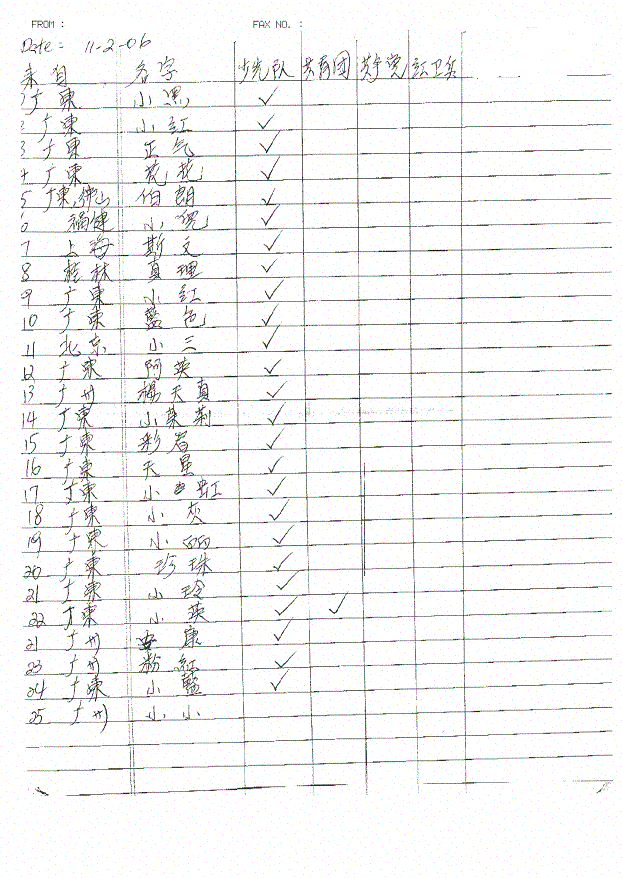 FROM : FAX NO. :
Date: 11-2-06
来自 名字 少先队 共青团 共产党 红卫兵
广東 小黑 ✓
2 广東 小红 ✓
3 广東 正气 ✓
4 广東 花花 ✓
5 广東,佛山 伯朗 ✓
6 福健 小倪 ✓
7 上海 斯文 ✓
8 桂林 真理 ✓
9 广東 小红 ✓
10 广東 藍色 ✓
11 北京 小三 ✓
12 广東 阿英 ✓
13 广州 楊天真 ✓
14 广東 小茉莉 ✓
15 广東 彩君 ✓
16 广東 天星 ✓
17 广東 小虹 ✓
18 广東 小灰 ✓
19 广東 小 ✓
20 广東 珍珠 ✓
21 广東 小玲 ✓
22 广東 小英 ✓ ✓
21 广州 安康 ✓
23 广州 粉紅 ✓
24 广東 小藍 ✓
25 广州 小小